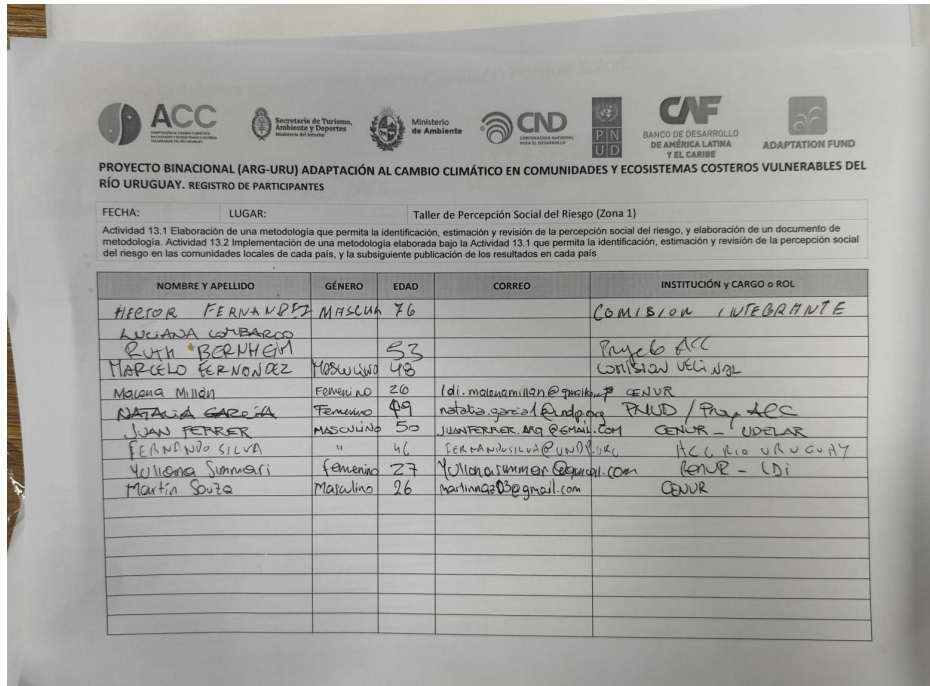 ACC
ADAPTACIÓN AL CAMBIO CLIMÁTICO
EN CIUDADES Y ECOSISTEMAS COSTEROS
VULNERABLES DEL RÍO URUGUAY
Secretaría de Turismo,
Ambiente y Deportes
Ministerio del Interior
Ministerio
de Ambiente
CND
CORPORACIÓN NACIONAL
PARA EL DESARROLLO
PNUD
CAF
BANCO DE DESARROLLO
DE AMÉRICA LATINA
Y EL CARIBE
ADAPTATION FUND
PROYECTO BINACIONAL (ARG-URU) ADAPTACIÓN AL CAMBIO CLIMÁTICO EN COMUNIDADES Y ECOSISTEMAS COSTEROS VULNERABLES DEL
RÍO URUGUAY. REGISTRO DE PARTICIPANTES
FECHA: LUGAR: Taller de Percepción Social del Riesgo (Zona 1)
Actividad 13.1 Elaboración de una metodología que permita la identificación, estimación y revisión de la percepción social del riesgo, y elaboración de un documento de
metodología. Actividad 13.2 Implementación de una metodología elaborada bajo la Actividad 13.1 que permita la identificación, estimación y revisión de la percepción social
del riesgo en las comunidades locales de cada país, y la subsiguiente publicación de los resultados en cada país
NOMBRE Y APELLIDO GÉNERO EDAD CORREO INSTITUCIÓN y CARGO o ROL
HECTOR FERNANDEZ MASCUL 76 COMISION INTEGRANTE
LUCIANA LOMBARDO
RUTH BERNHEIM 53 Proyecto ACC
MARCELO FERNANDEZ MASCULINO 48 COMISION VECINAL
Malena Millán Femenino 26 ldi.malenamillan@gmail CENUR
NATALIA GARCÍA Femenino 49 PNUD / Proy ACC
JUAN FERRER MASCULINO 50 JUANFERRER.ARQ@GMAIL.COM CENUR - UDELAR
FERNANDO SILVA " 46 FERNANDO.SILVA@UNDP.ORG ACC RIO URUGUAY
Yuliana Simmari femenino 27 CENUR - LDI
Martín Souza Masculino 26 martinnaz03@gmail.com CENUR